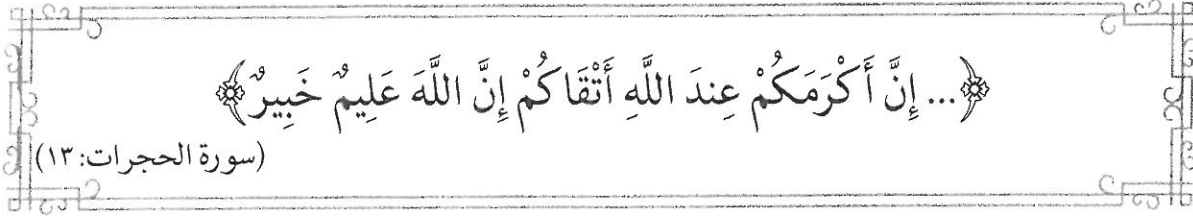 ﴿... إِنَّ أَكْرَمَكُمْ عِندَ اللَّهِ أَتْقَاكُمْ إِنَّ اللَّهَ عَلِيمٌ خَبِيرٌ﴾
(سورة الحجرات: ١٣)